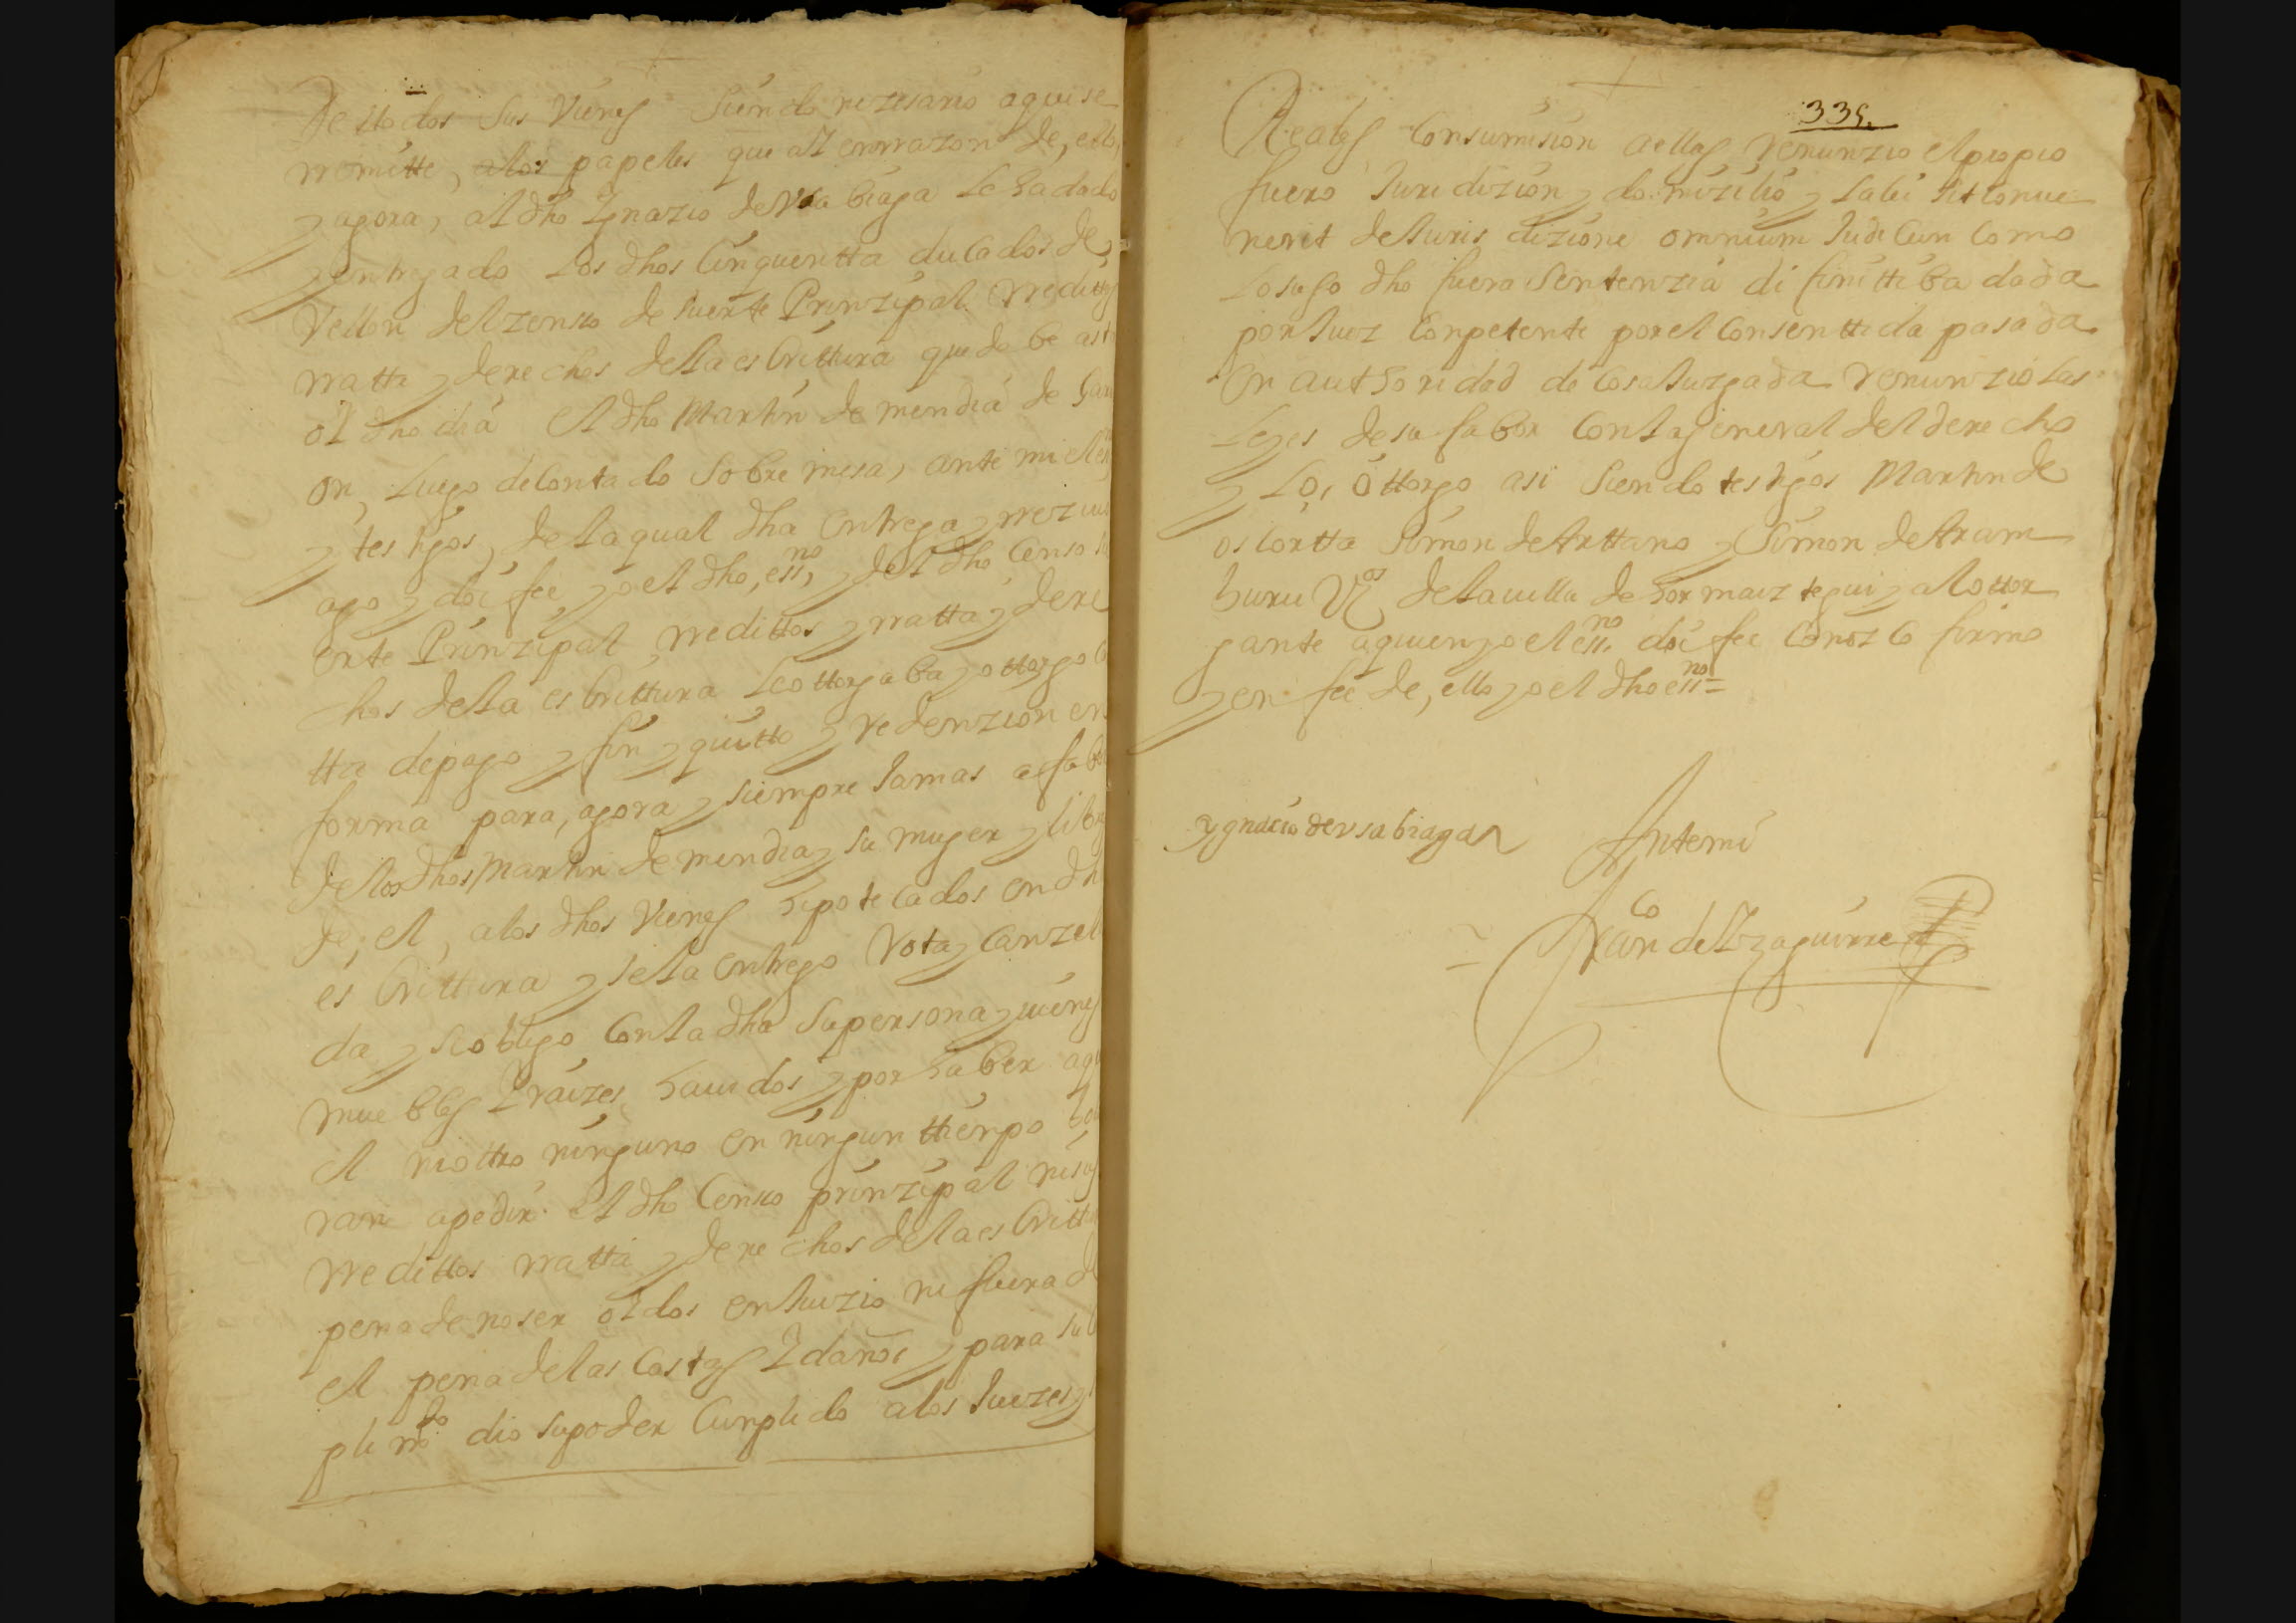 De ttodos sus Vienes Siendo nezesario aquise
rremitte, alos papeles que ai enrrazon de, ello,
y agora, al dho Ygnazio de Vsabiaga le ha dado
y entregado los dhos Cinquentta ducados de
Vellon del zenso de suerte Prinzipal rreditos
rratta y derechos de la esCrittura que do be asta
oi dho dia el dho Martin de mendia de
on, luego de Contado Sobre mesa, ante mi el
y testigos, de la qual dha entrega y rreziuo
ago y doi fee yo el dho, essno, y del dho Censo
erte Prinzipal rredittos y rratta y dere
chos de la esCrittura le ottorgaba y ottorgo
tta de pago y fin y quitto y redenzion en
forma para, agora y siempre Jamas a fabor
de los dhos Martin de mendia y su muger y
de, el, a los dhos Vienes hipotecados en dh
esCrittura y se la entrego Rota y Canzel
da y se obligo Con la dha Su persona y uienes
muebles Y raizes hauidos y por haber
el ni ottro ninguno en ningun ttienpo
ran a pedir el dho Censo prinzipal ni sus
rredittos rratta y derechos de la esCritt
pena de no ser oidos en Juizio ni fuera de
el pena de las Costas Y daños y para su
plimdo dio su poder Cunplido a los Juezes y
335.
Reales Consumision a ellas renunzio el propio
fuero Juridizion y domizilio y la lei sit Conue
nerit de Juris dizione omnium Judi Cun Como
lo suso dho fuera Sentenzia di finittiba dada
por Juez Conpetente por el Consenttida pasada
en authoridad de Cosa Juzgada renunzio las
leyes de su fabor Con la jeneral del derecho
y lo, ottorgo asi Siendo testigos Martin de
oscortta Simon de Arttano y Simon de Aram
buru Vos de la uilla de hormaiztegui y al ottor
gante a quien yo el essno doi fee Conozco firmo
y en fee de, ello yo el dho essno =
ygnacio de vsabiaga
Ante mi
Franco de Yzaguirre